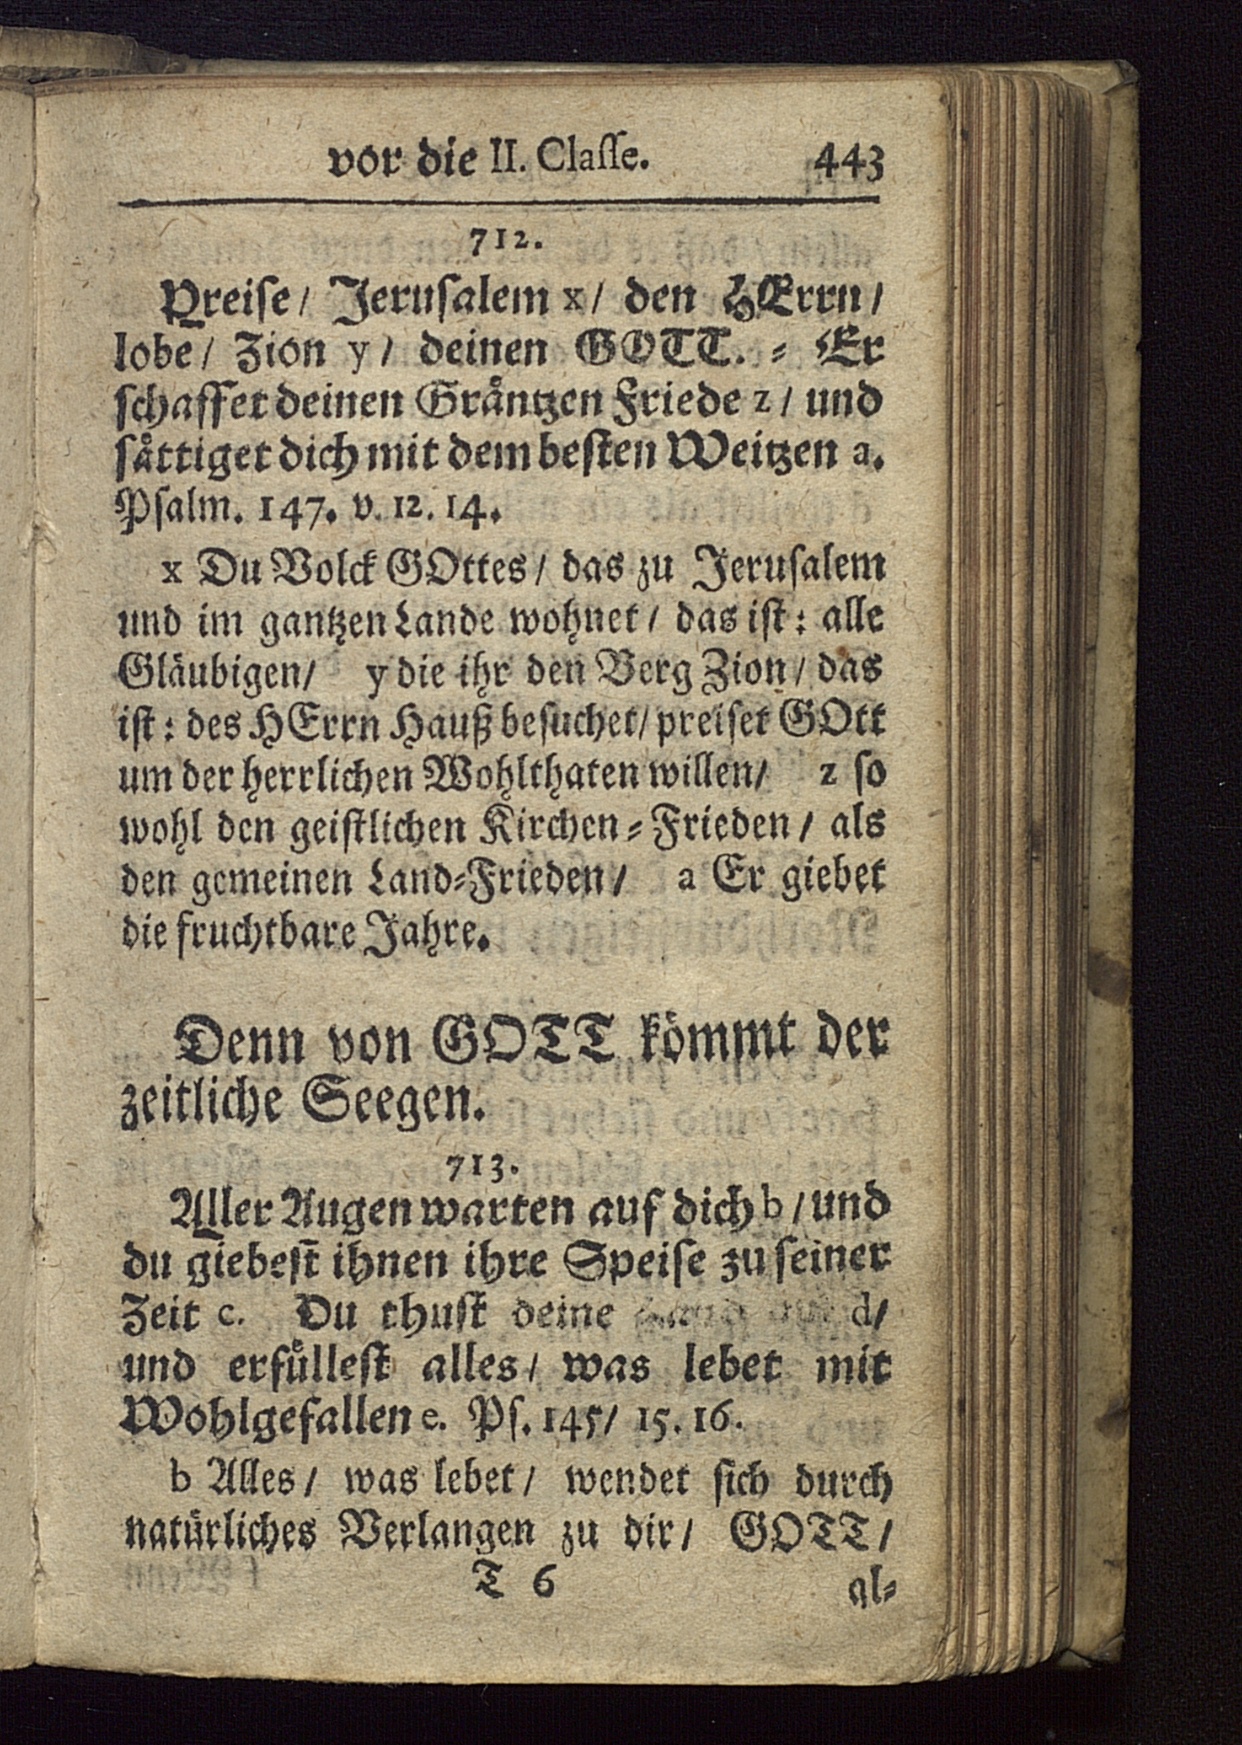 vor die II. Claſſe. 443
712.
Preiſe/ Jeruſalem x/ den HErrn/
lobe/ Zion y/ deinen GOTT. ⸗ Er
ſchaffet deinen Graͤntzen Friede z/ und
ſaͤttiget dich mit dem beſten Weitzen a.
Pſalm. 147. v. 12. 14.
x Du Volck GOttes/ das zu Jeruſalem
und im gantzen Lande wohnet/ das iſt: alle
Gläubigen/ y die ihr den Berg Zion/ das
iſt: des HErrn Hauß beſuchet/ preiſet GOtt
um der herrlichen Wohlthaten willen/ z ſo
wohl den geiſtlichen Kirchen⸗Frieden/ als
den gemeinen Land⸗Frieden/ a Er giebet
die fruchtbare Jahre.
Denn von GOTT kömmt der
zeitliche Seegen.
713.
Aller Augen warten auf dich b/ und
du giebeſt ihnen ihre Speiſe zu ſeiner
Zeit c. Du thuſt deine d/
und erfuͤlleſt alles/ was lebet mit
Wohlgefallen e. Pſ. 145/ 15. 16.
b Alles/ was lebet/ wendet ſich durch
natürliches Verlangen zu dir/ GOTT/
T 6 al⸗